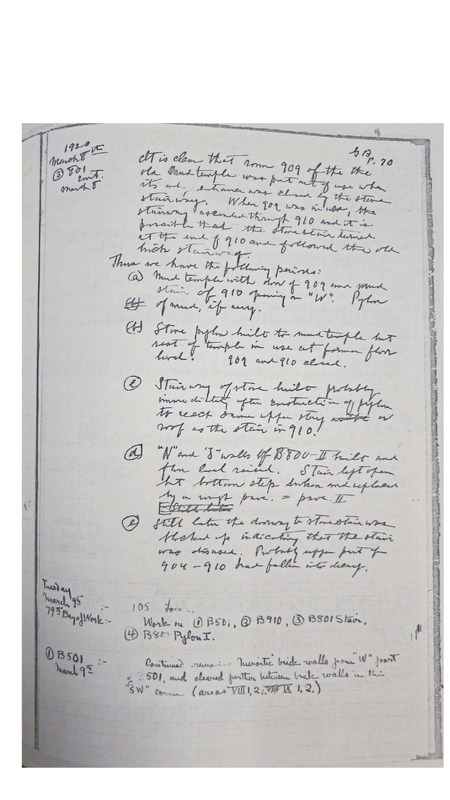 1920
March 8th
③ 801
cont.
March 8
GB
P. 70
It is clear that room 909 of the the
old mud temple was put out of use when
its only entrance was closed by the stone
stairway. When 909 was in use, the
stairway ascended through 910 and it is
possible that the stone stair turned
at the end of 910 and followed the old
brick stairway.
Thus we have the following periods:
(a) Mud temple with door of 909 and mud
stair of 910 opening on "W". Pylon
of mud, if any.
(b) Stone pylon built to mud temple but
rest of temple in use at former floor
level. 909 and 910 closed.
(c) Stairway of stone built probably
immediately after construction of pylon
to reach same upper story or
roof as the stair in 910.
(d) "N" and "S" walls of B800-II built and
floor level raised. Stair left open
but bottom step broken and replaced
by a rough pave. = pave. II
Still later
(e) Still later the doorway to stone stair was
blocked up indicating that the stair
was disused. Probably upper part of
904-910 had fallen into decay.
Tuesday
March 9th :-
79th Day of Work:-
105
Work on ① B501, ② B910, ③ B801 Stair,
④ B801 Pylon I.
① B501 :-
March 9th
Continued Meroitic brick walls from "W" part
501, and cleared further between brick walls in this
"SW" corner (areas VIII 1,2; IX 1,2.)